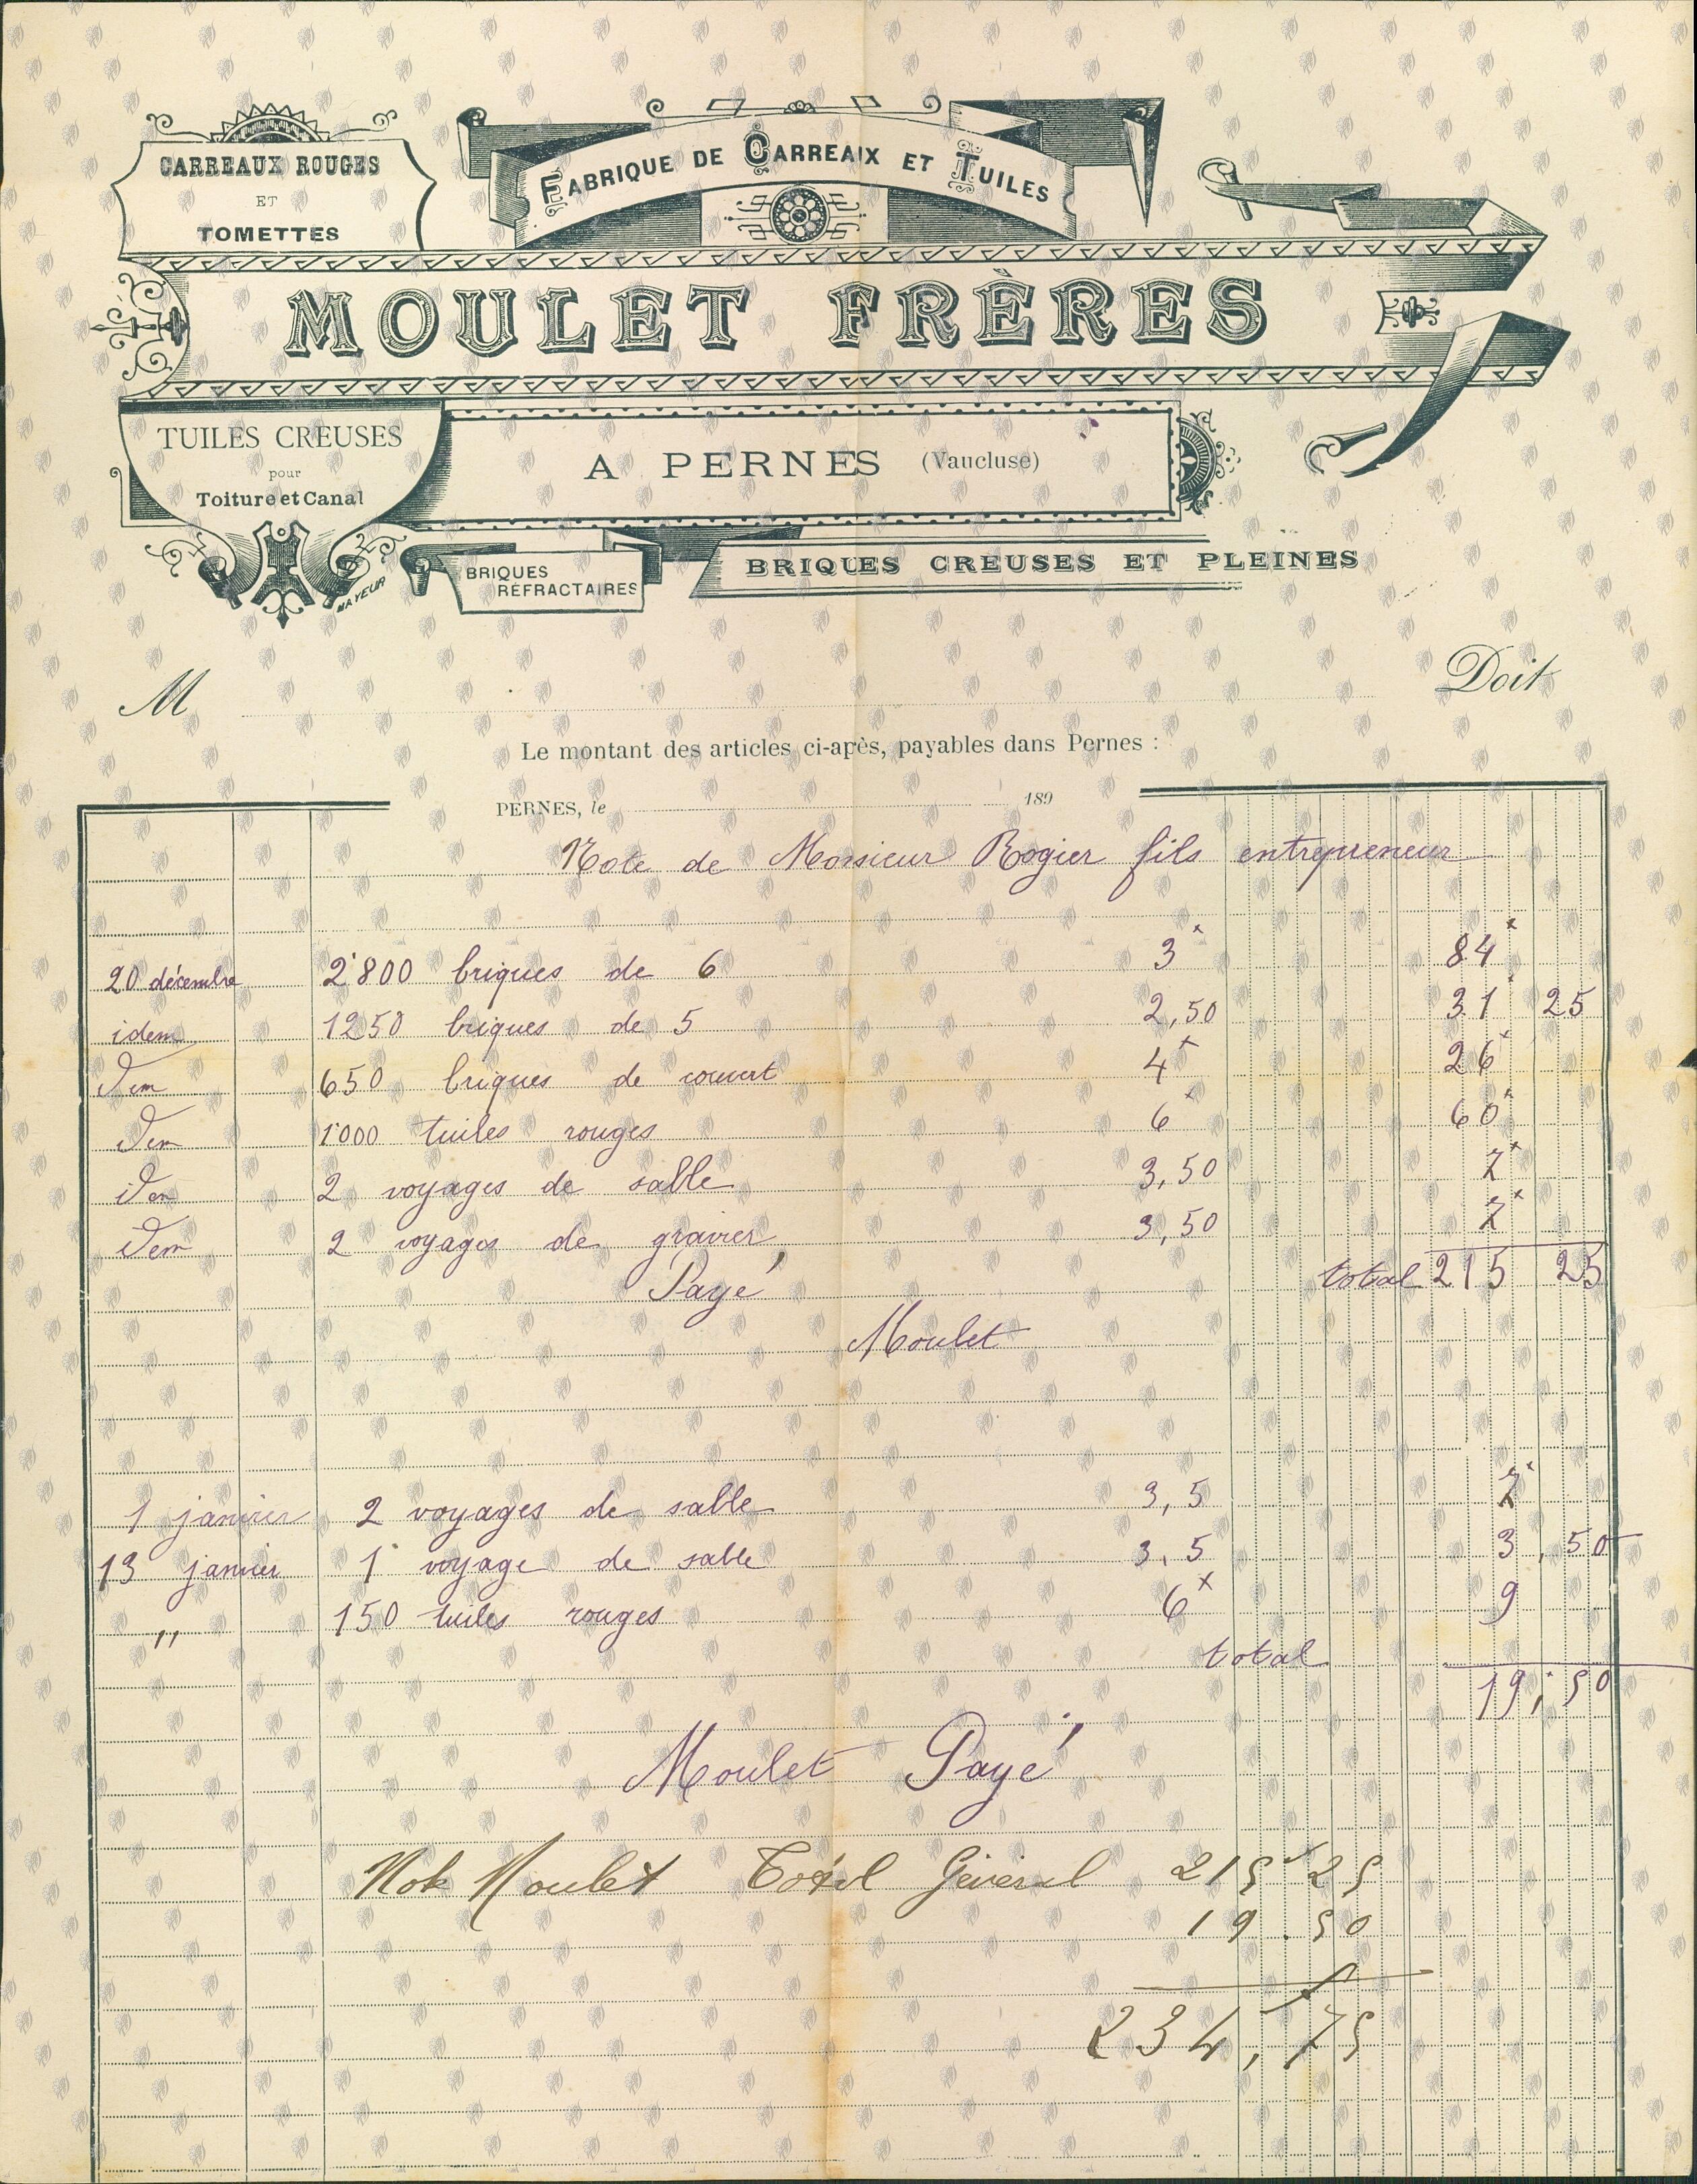 CARREAUX ROUGES
ET
TOMETTES
FABRIQUE DE CARREAUX ET TUILES
MOULET FRÈRES
TUILES CREUSES
pour
Toiture et Canal
A PERNES (Vaucluse)
MAYEUR
BRIQUES
RÉFRACTAIRES
BRIQUES CREUSES ET PLEINES
M Doit
Le montant des articles ci-après, payables dans Pernes :
PERNES, le 189
Note de Monsieur Rogier fils entrepreneur
20 décembre 2'800 briques de 6 3 84
idem 1250 briques de 5 2,50 31 25
idem 650 briques de couvert 4 26
idem 1'000 tuiles rouges 6 60
idem 2 voyages de sable 3,50 7
idem 2 voyages de gravier 3,50 7
total 215 25
Payé
Moulet
1 janvier 2 voyages de sable 3,5 7
13 janvier 1 voyage de sable 3,5 3,50
" 150 tuiles rouges 6 9
total
19,50
Moulet Payé
Note Moulet Total Général 215 25
19.50
234,75